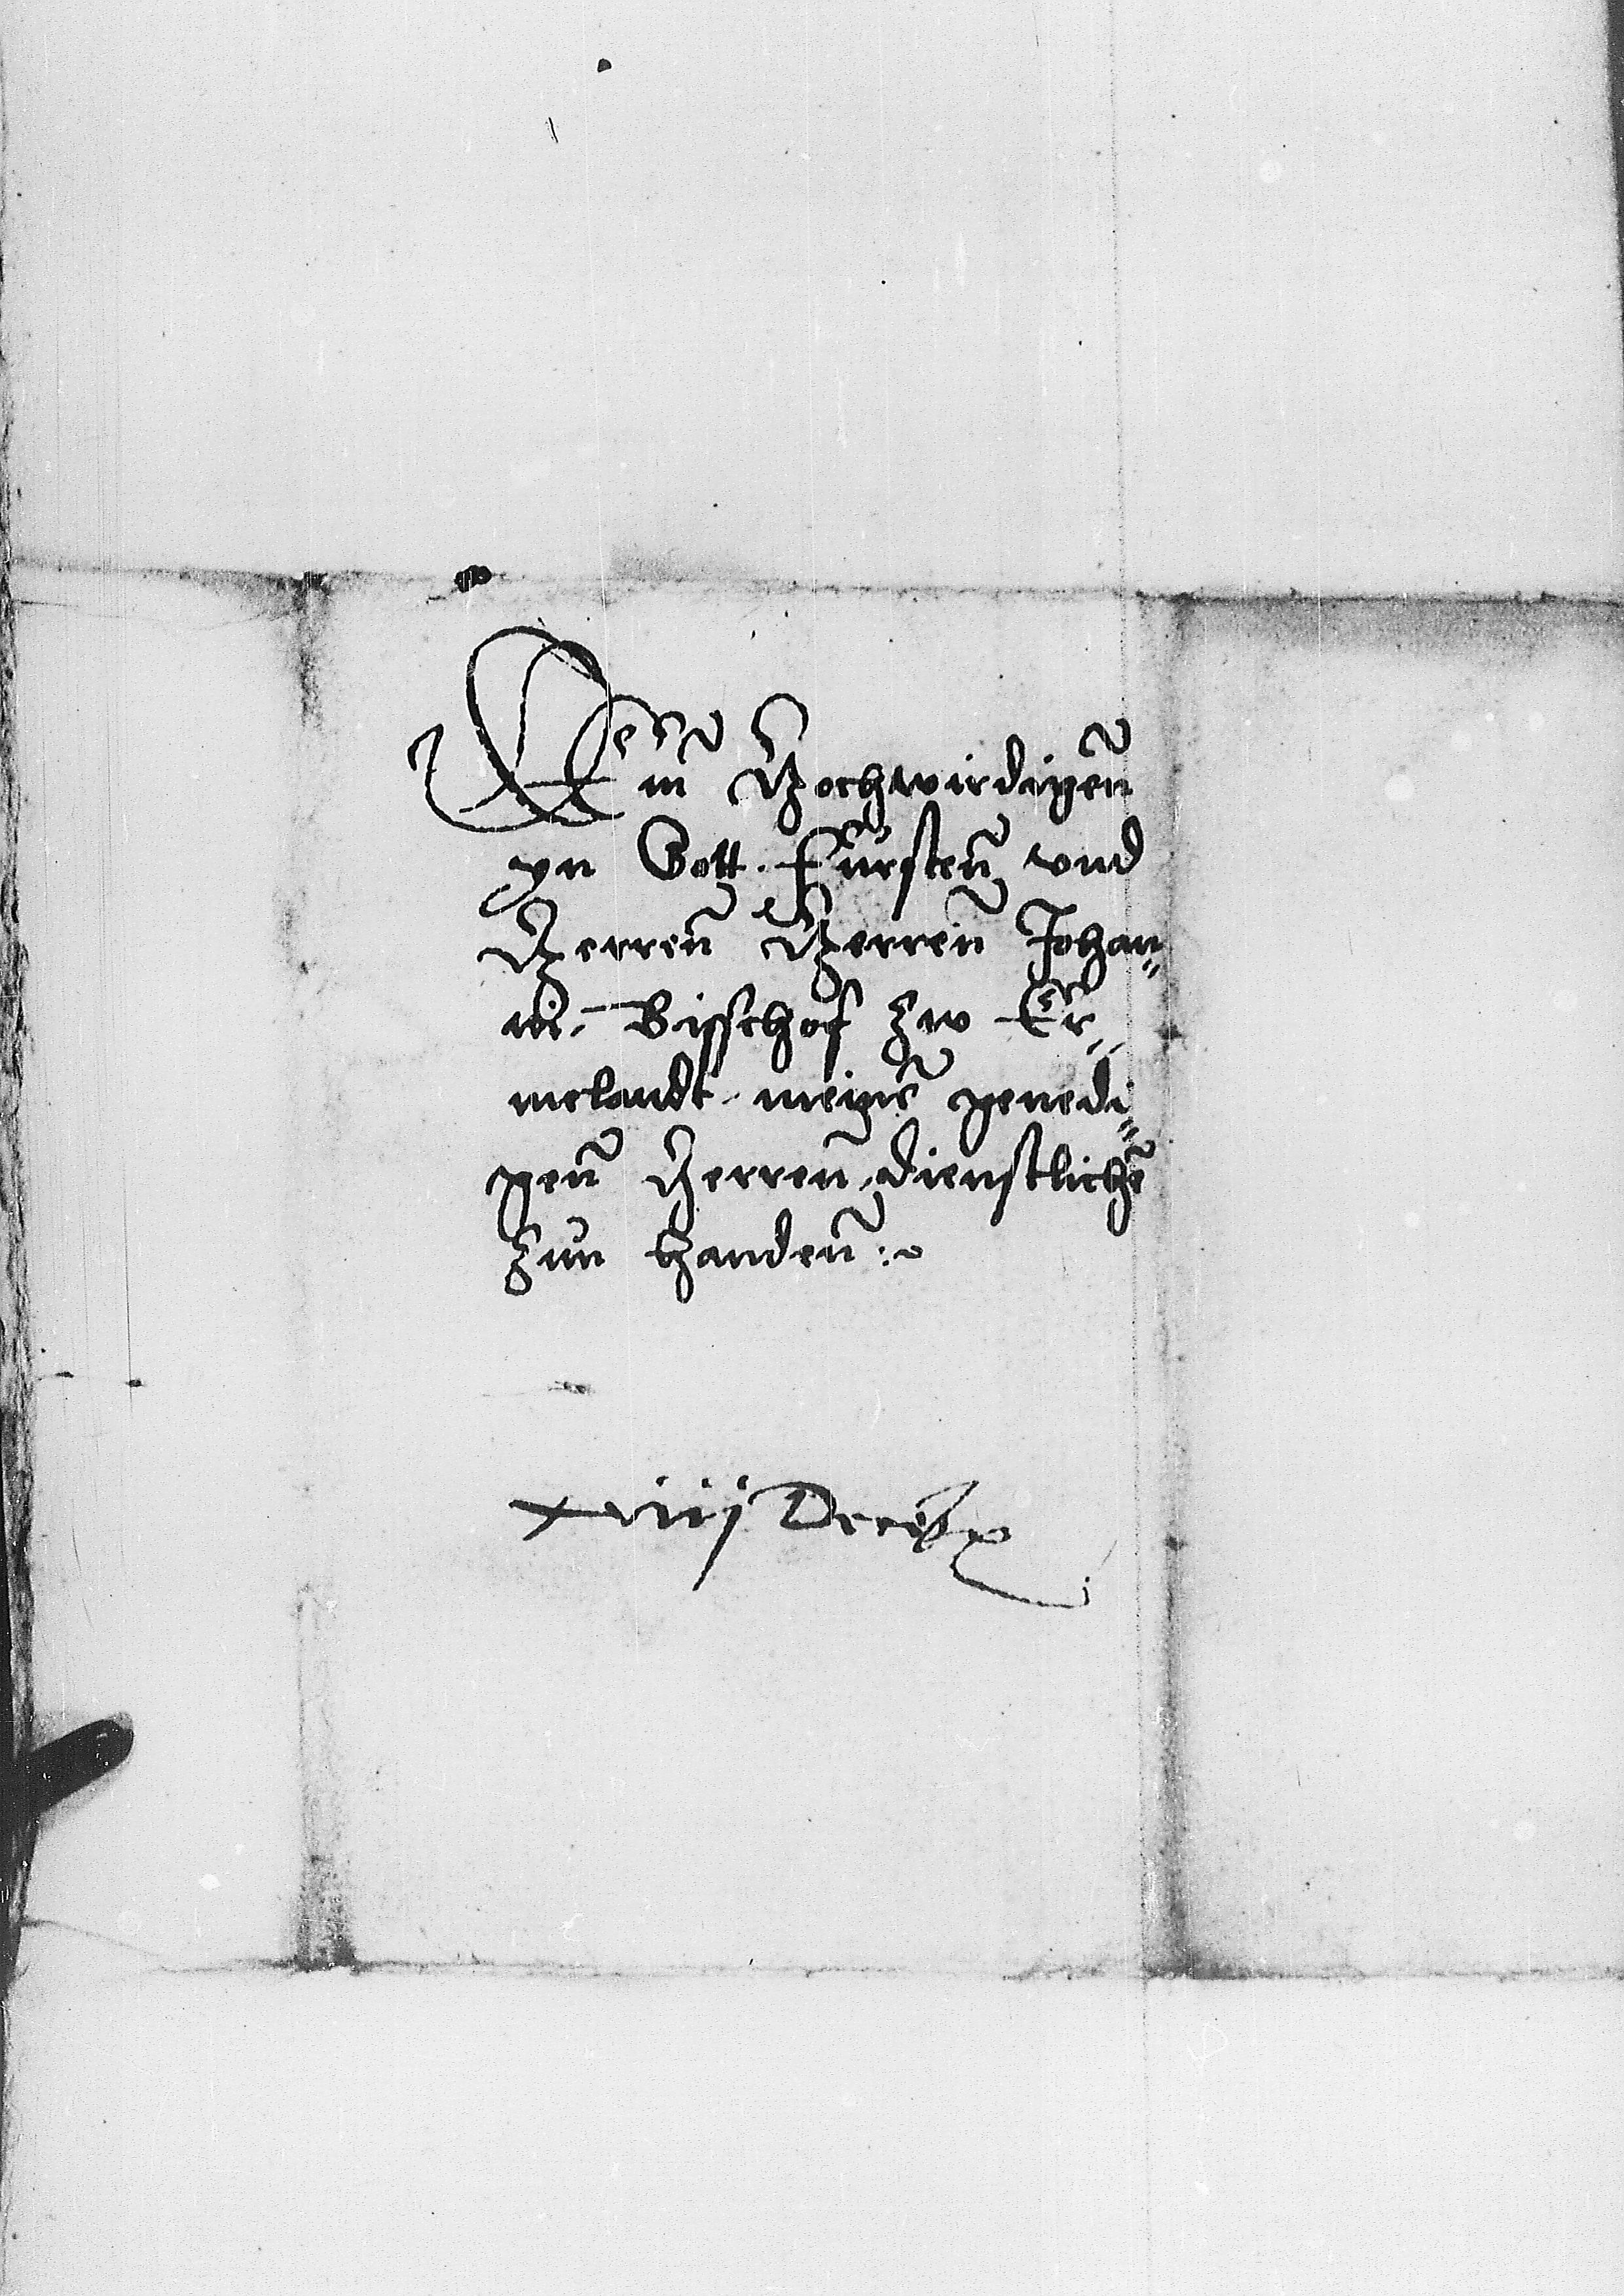 Dem Hochwirdigenn
yn Gott Fürstenn vnd
Herrenn Herrenn Johan„
ni, Bisschof zw Er„
melandt meyne͂ genedi„
genn Herrenn, dienstliche͂
zun handenn:.
xviiij Dece͂br